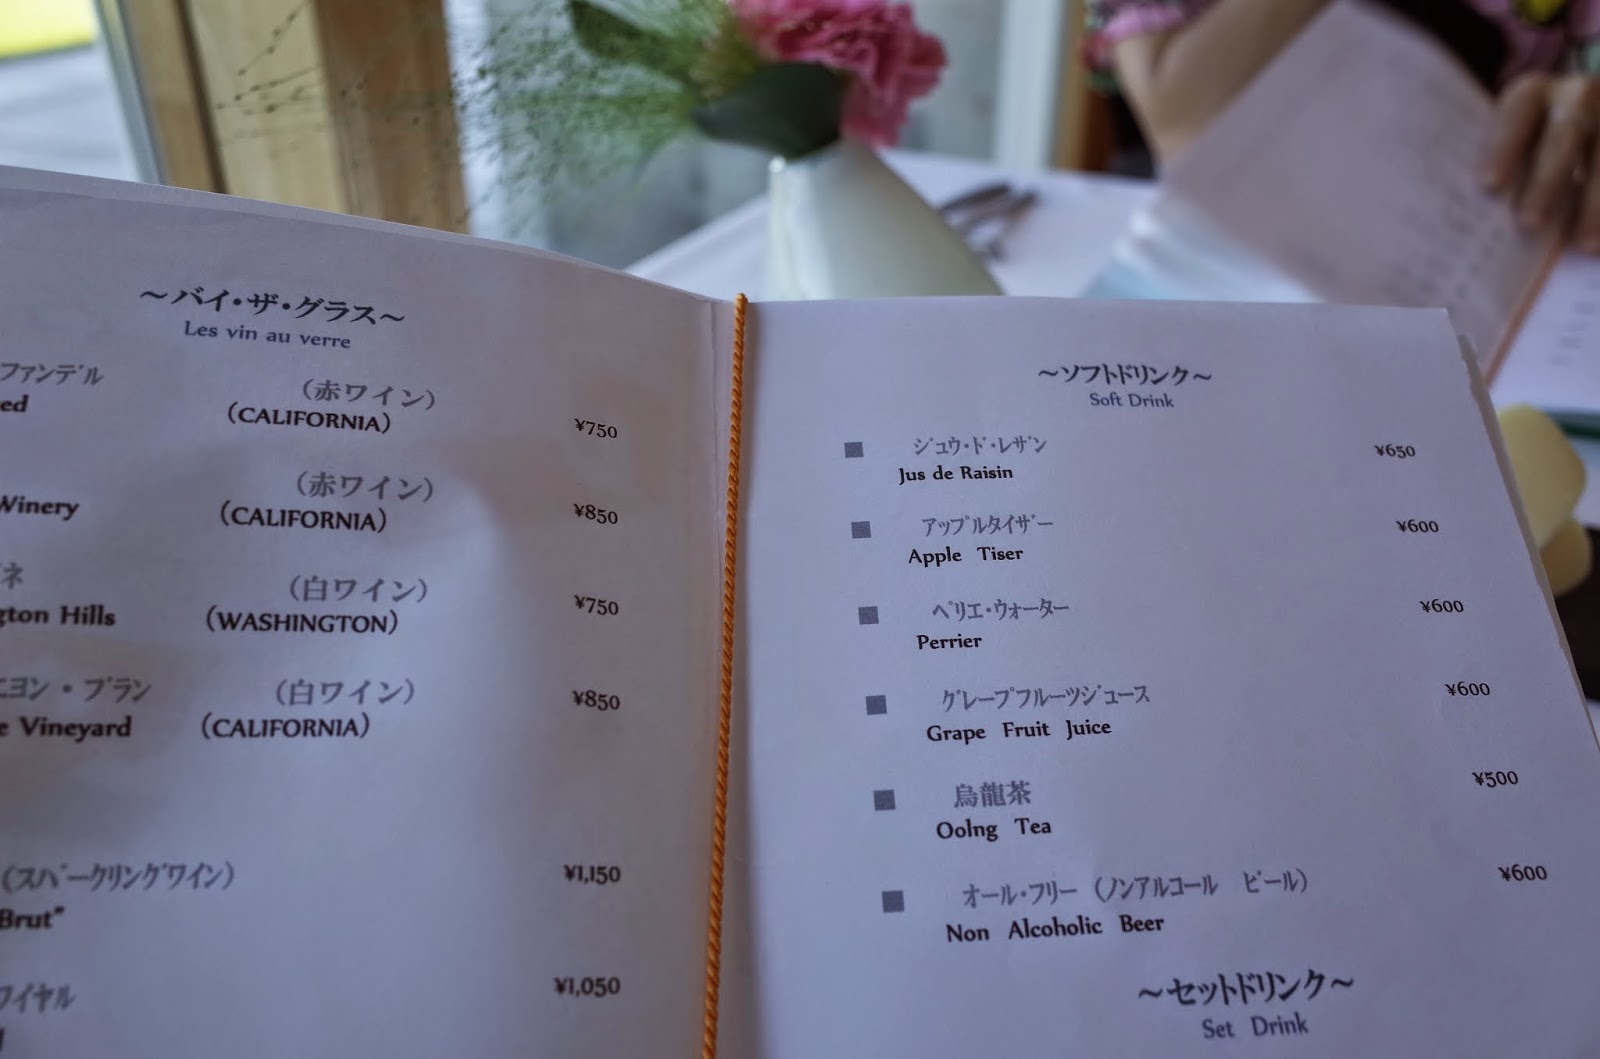 ～バイ・ザ・グラス～
Les vin au verre
ファンデル （赤ワイン）
ed （CALIFORNIA） ¥750
（赤ワイン）
Winery （CALIFORNIA） ¥850
ネ （白ワイン）
gton Hills （WASHINGTON） ¥750
ヨン・ブラン （白ワイン）
e Vineyard （CALIFORNIA） ¥850
（スパークリングワイン） ¥1,150
Brut”
ワイヤル ¥1,050
～ソフトドリンク～
Soft Drink
■ ジュウ・ド・レザン ¥650
Jus de Raisin
■ アップルタイザー ¥600
Apple Tiser
■ ペリエ・ウォーター ¥600
Perrier
■ グレープフルーツジュース ¥600
Grape Fruit Juice
■ 烏龍茶 ¥500
Oolng Tea
■ オール・フリー（ノンアルコール ビール） ¥600
Non Alcoholic Beer
～セットドリンク～
Set Drink